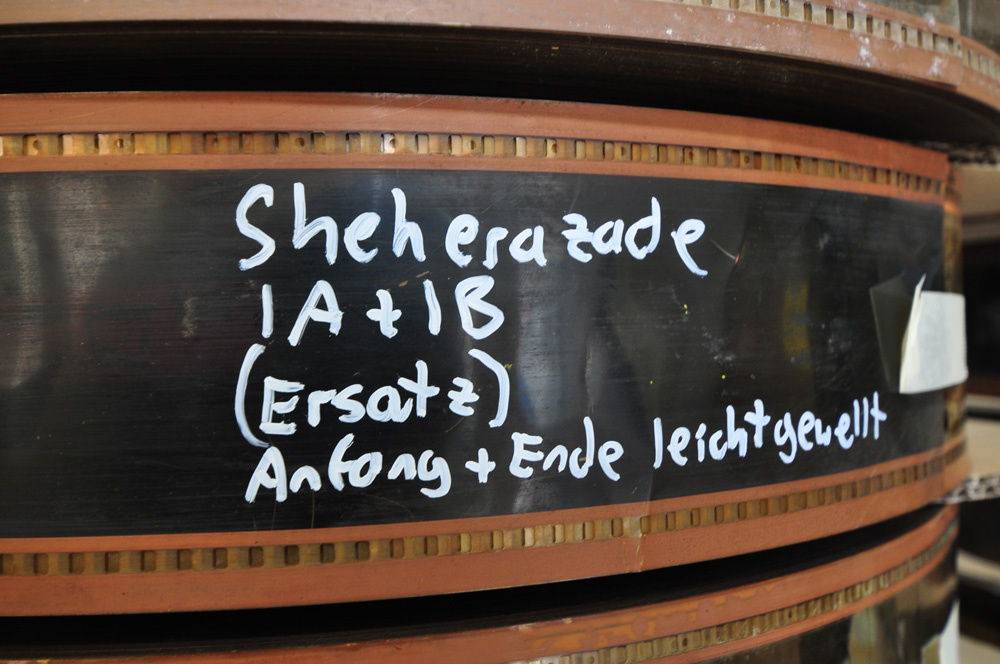 Sheherazade
1A + 1B
(Ersatz)
Anfang + Ende leicht gewellt